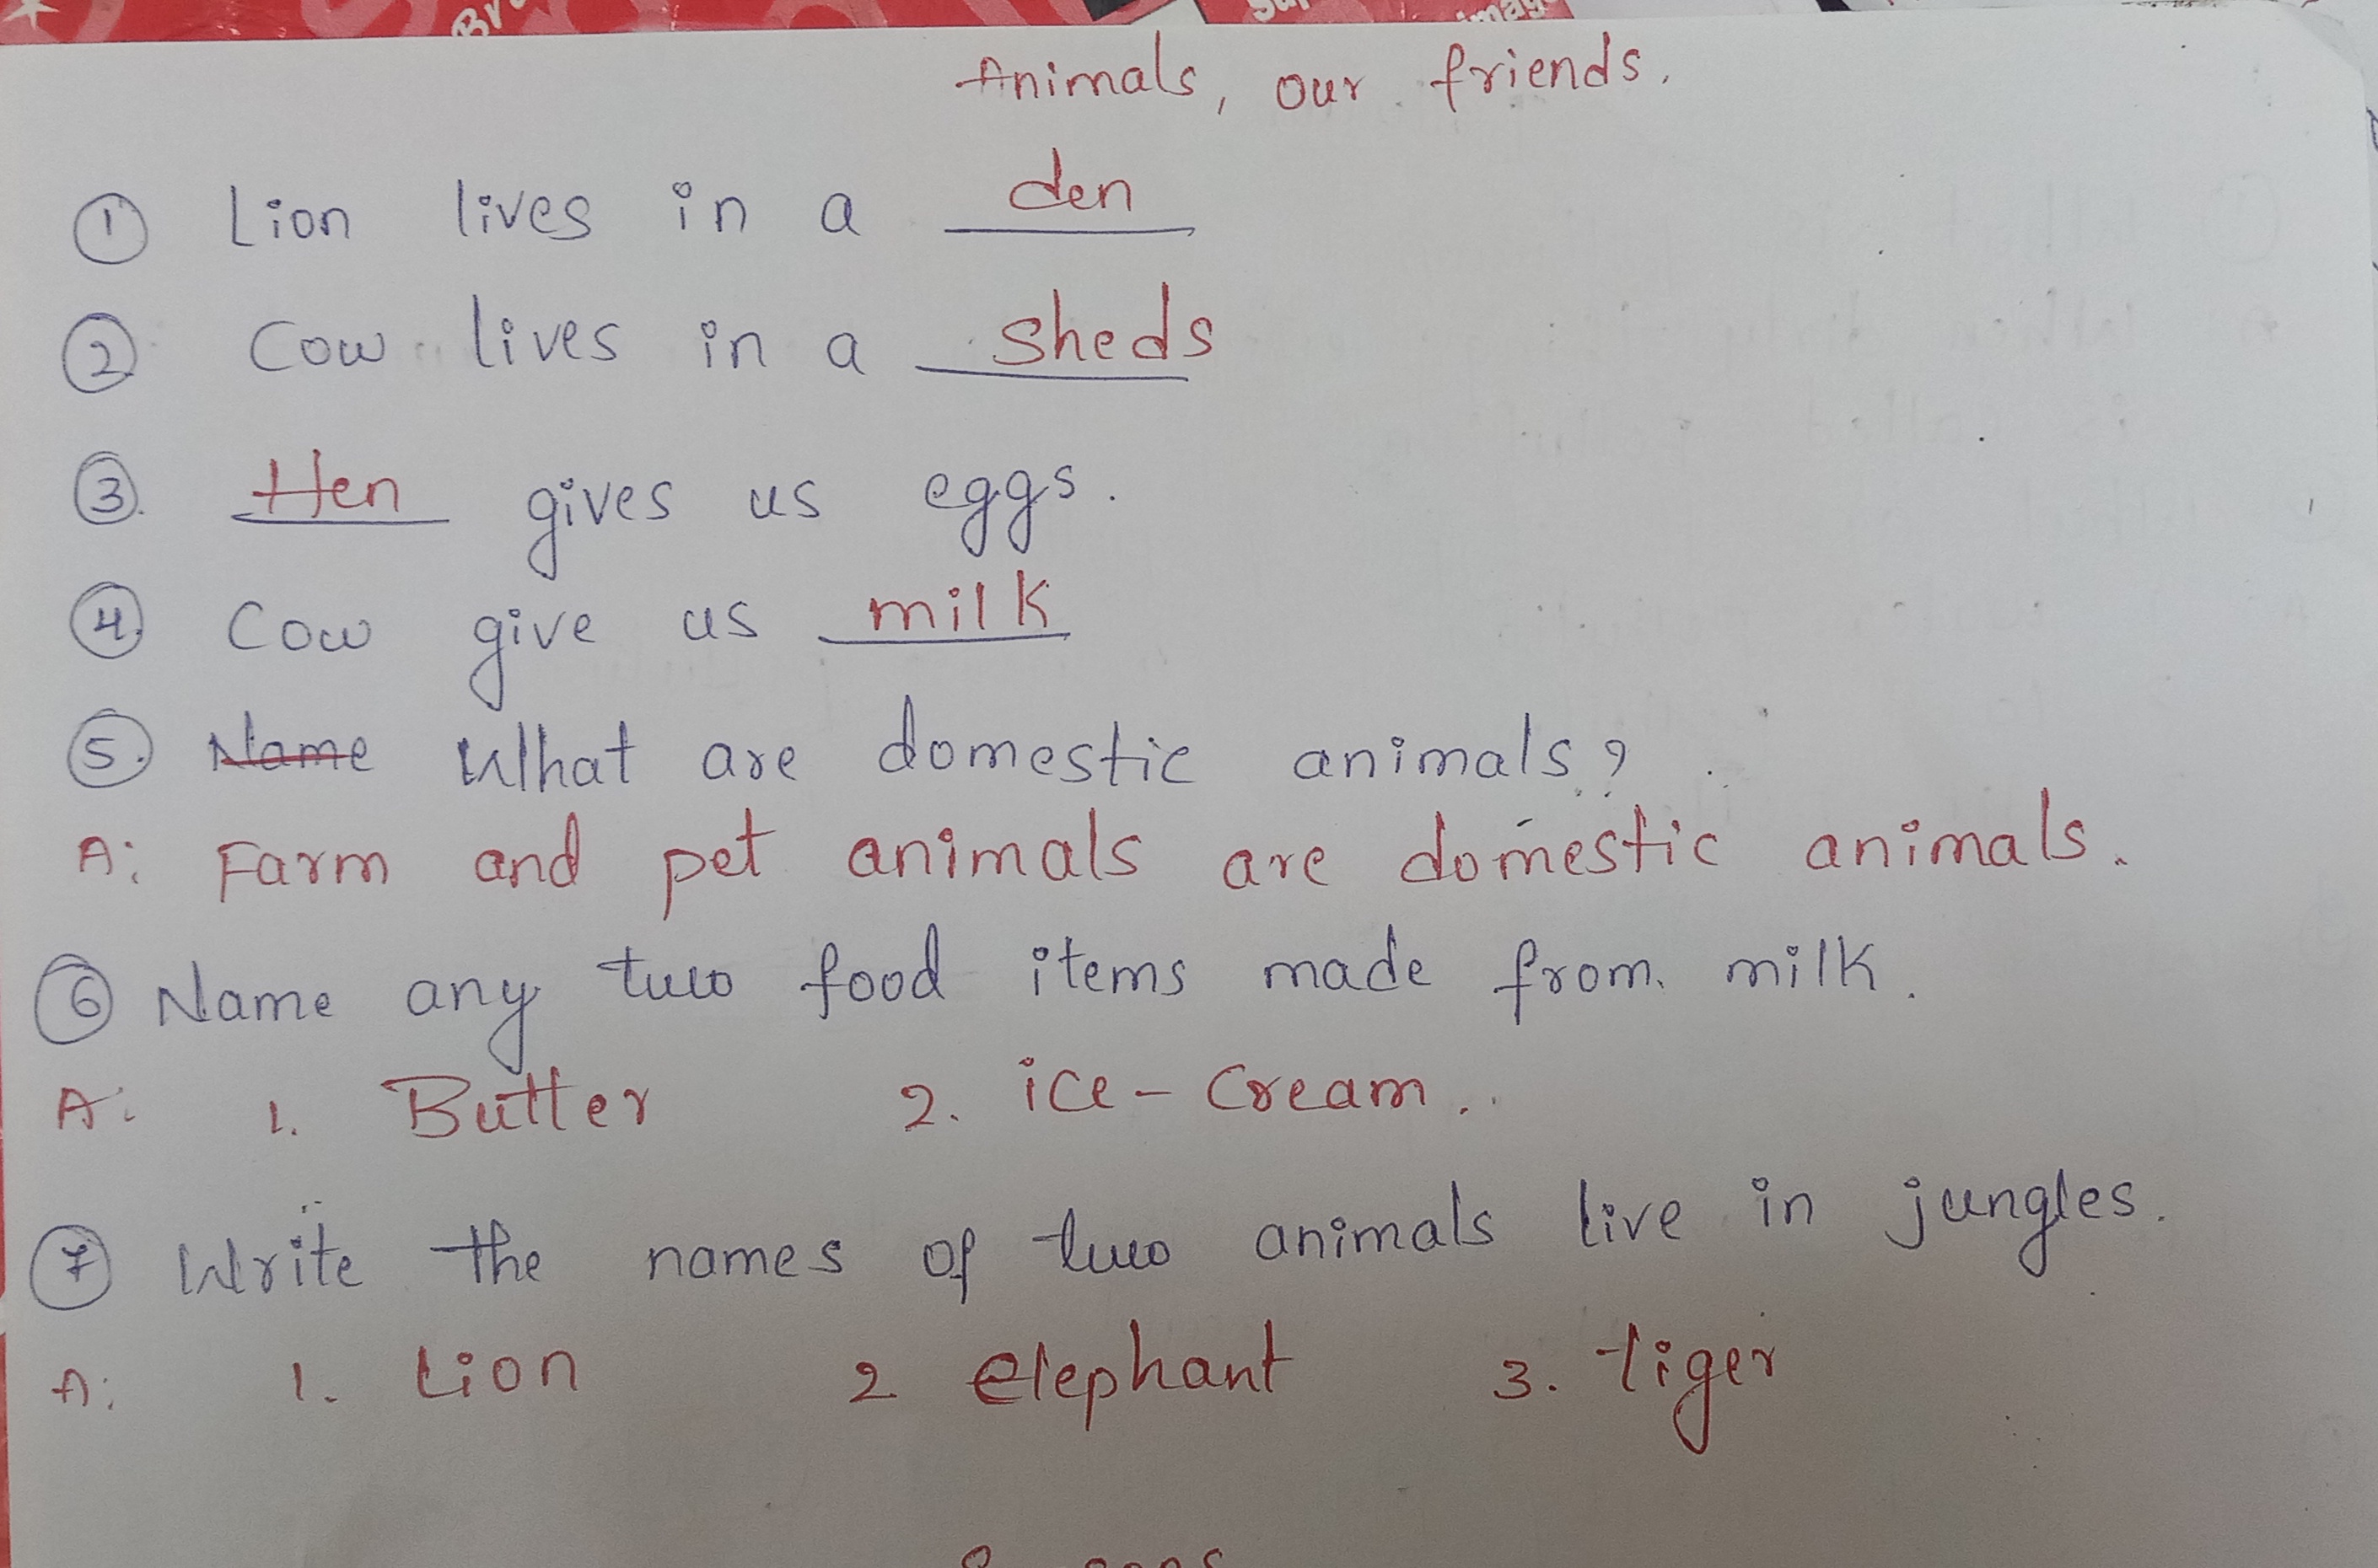 Animals, our friends.
① Lion lives in a den
② Cow lives in a sheds
③. Hen gives us eggs.
④. Cow give us milk
⑤. Name What are domestic animals?
A: Farm and pet animals are domestic animals.
⑥ Name any two food items made from milk.
A: 1. Butter 2. ice-cream.
⑦ Write the names of two animals live in jungles.
A: 1. Lion 2 elephant 3. tiger